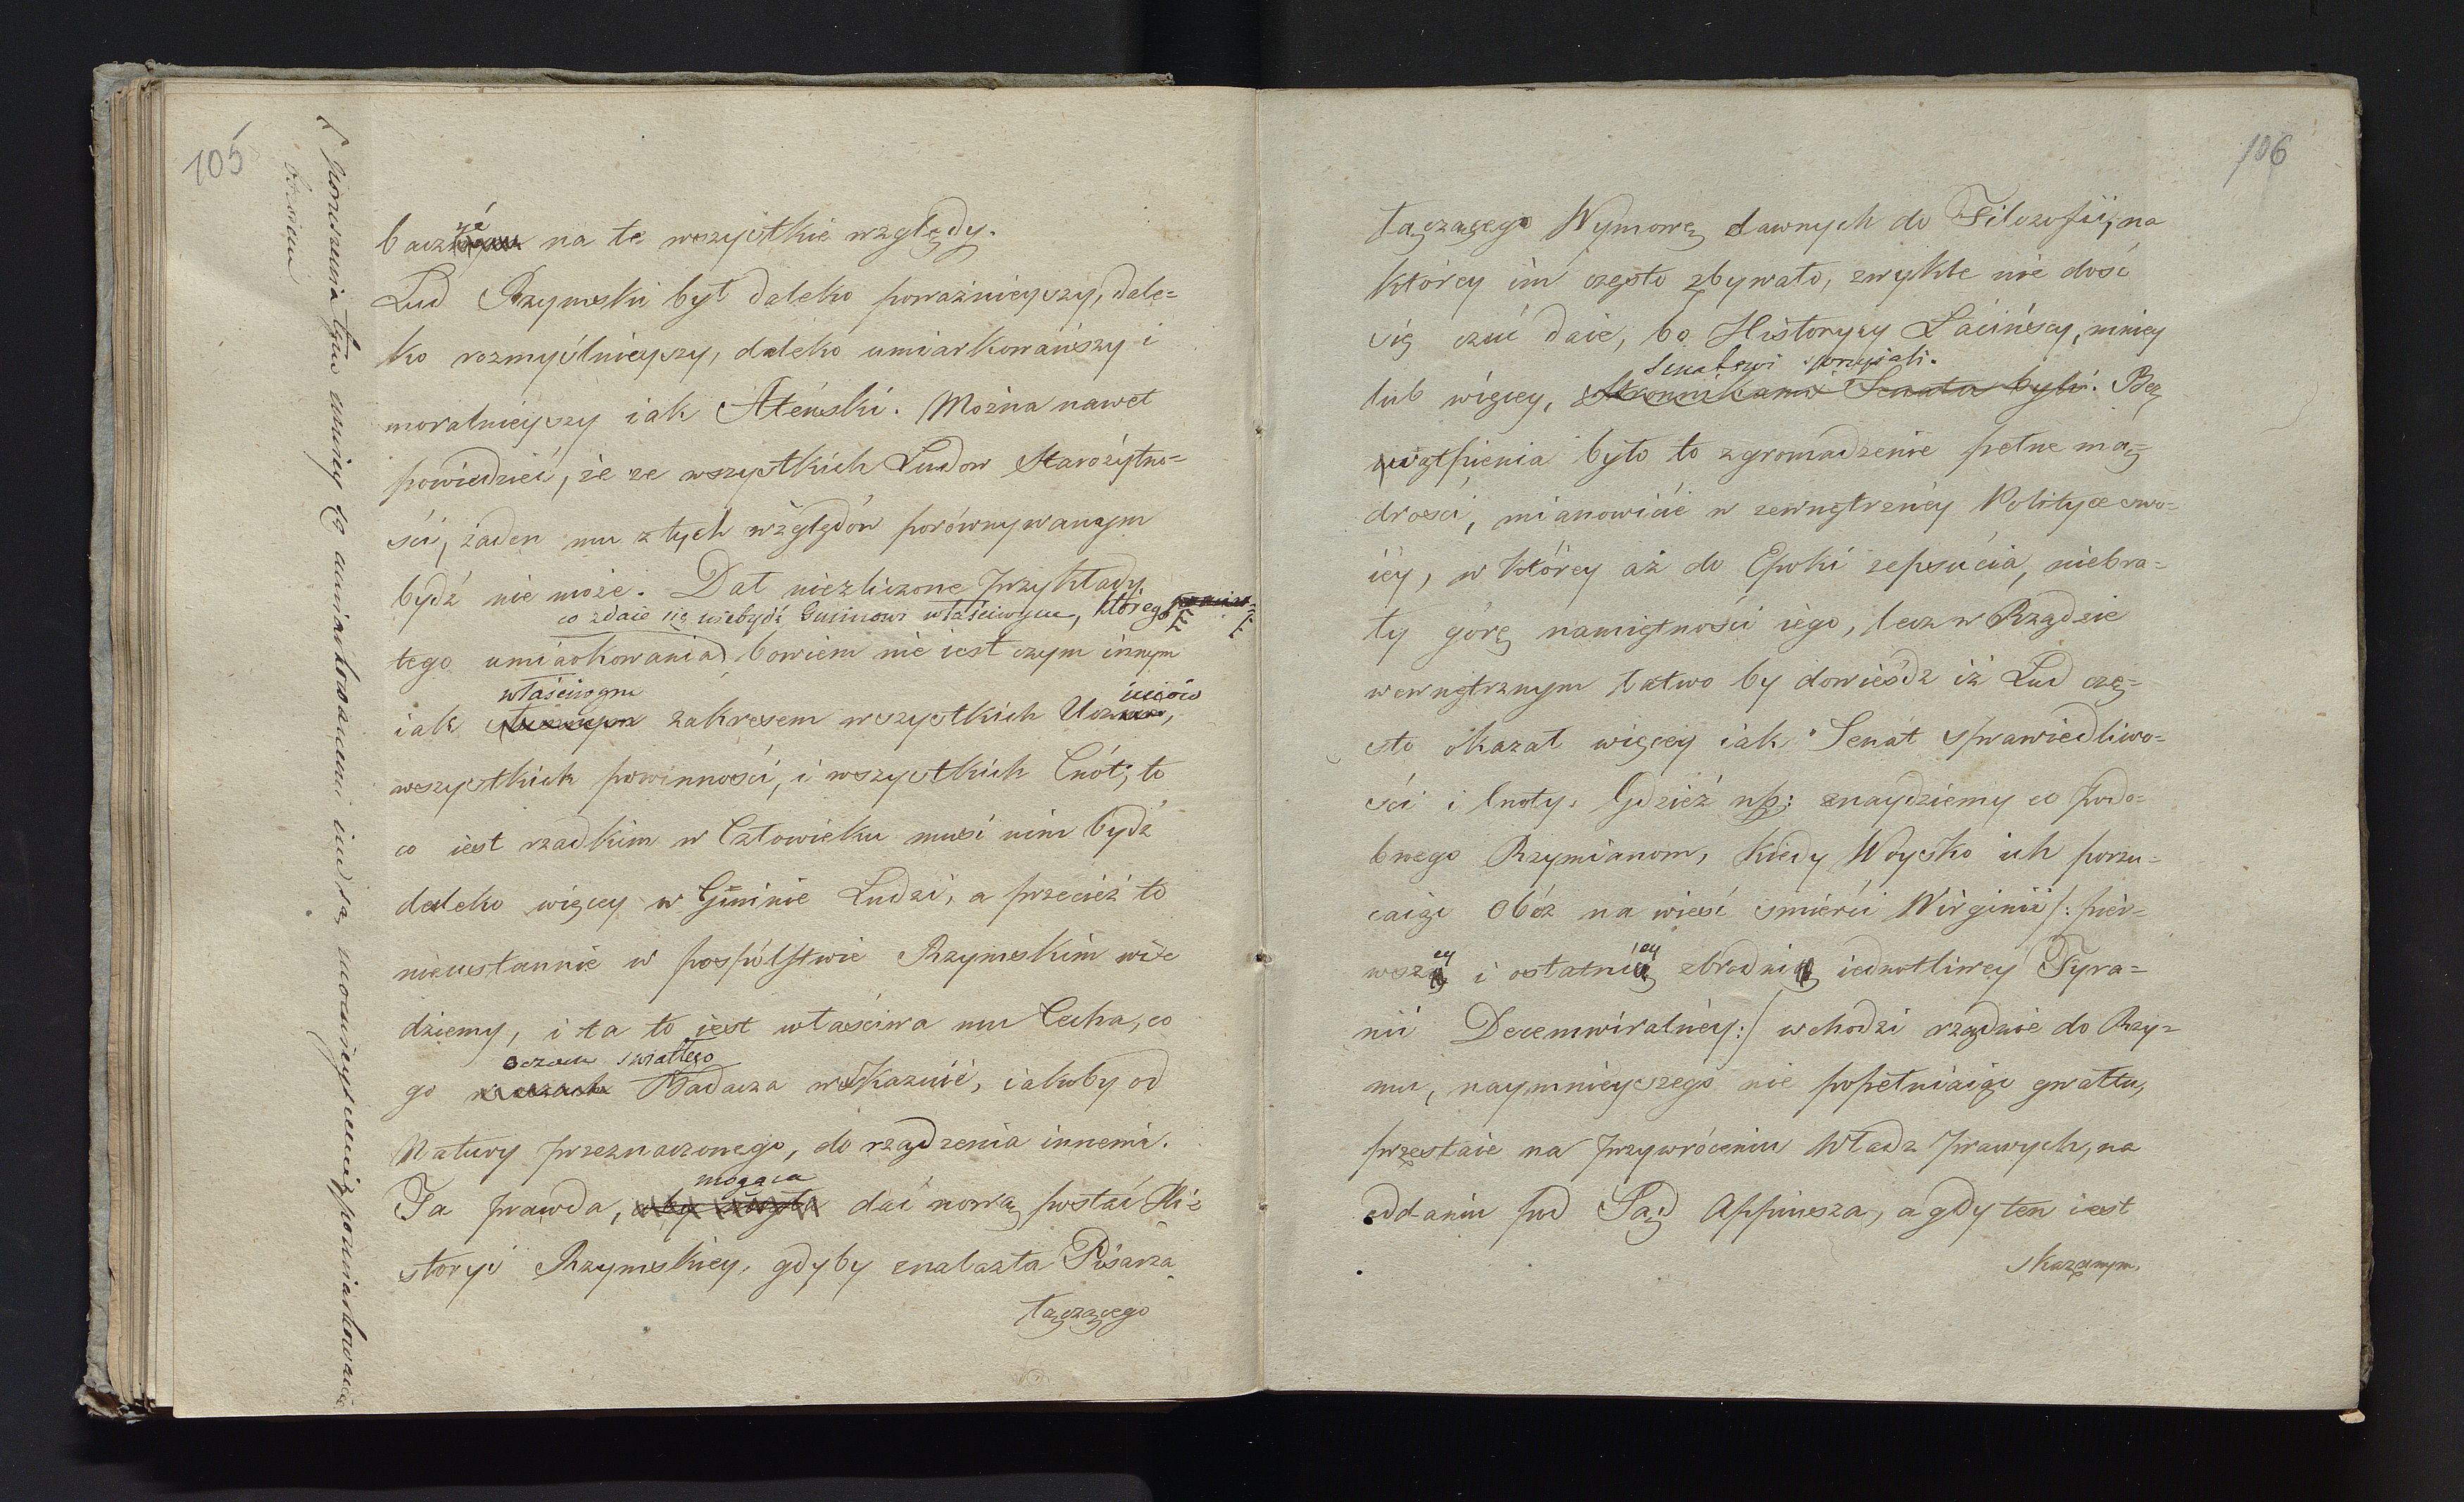 105
bacząć na te wszystkie względy.
Lud Rzymski był daleko poważnieyszy, dale=
ko rozmyślnieyszy, daleko umiarkowańszy i
moralnieyszy iak Ateński. Można nawet
powiedzieć, że ze wszystkich Ludow Starożytno=
ści, żaden mu z tych względów porównywanym
bydź nie może. Dał niezliczone przykłady
co zdaie się niebydź Gminowi właściwym, którego
tego umiarkowania bowiem nie iest czym innym
właściwym
iak słusznym zakresem wszystkich Uczuciów,
wszystkich powinności, i wszystkich Cnót; to
co iest rzadkim w Człowieku musi nim bydź
daleko więcey w Gminie Ludzi, a przecież to
nieustannie w pospólstwie Rzymskim wi=
dziemy, i ta to iest właściwa mu Cecha, co
oczom światłego
go w oczach Badacza wskazuie, iakoby od
Natury przeznaczonego, do rządzenia innemi.
mogąca
Ta prawda, dać nową postać Hi=
storyi Rzymskiey, gdyby znalazła Pisarza
łączącego
106
łączącego Wymowę dawnych do Filozofii, na
którey im często zbywało, zwykle nie dość
się czuć daie, bo Historycy Łacińscy, mniey
Senatowi sprzyiali.
lub więcey, Stronnikami Senatu byli. Bez
wątpienia było to zgromadzenie pełne mą=
drości, mianowicie w zewnętrzney Polityce swo=
iey, w którey aż do Epoki zepsucia, niebra=
ły górę namiętności iego, lecz w Rządzie
wewnętrznym łatwo by dowieśdź iż Lud czę=
sto okazał więcey iak Senat sprawiedliwo=
ści i Cnoty. Gdzież np: znaydziemy co podo=
bnego Rzymianom, kiedy Woysko ich porzu=
caiąc Obóz na wieść śmierci Wirginii /: pier=
wszey i ostatniey zbrodni iednotliwey Tyra=
nii Decemwiralney:/ wchodzi rządnie do Rzy=
mu, naymnieyszego nie popełniaiąc gwałtu,
przestaie na przywróceniu Władz prawych, na
oddaniu pod Sąd Appiusza, a gdy ten iest
skazanym,